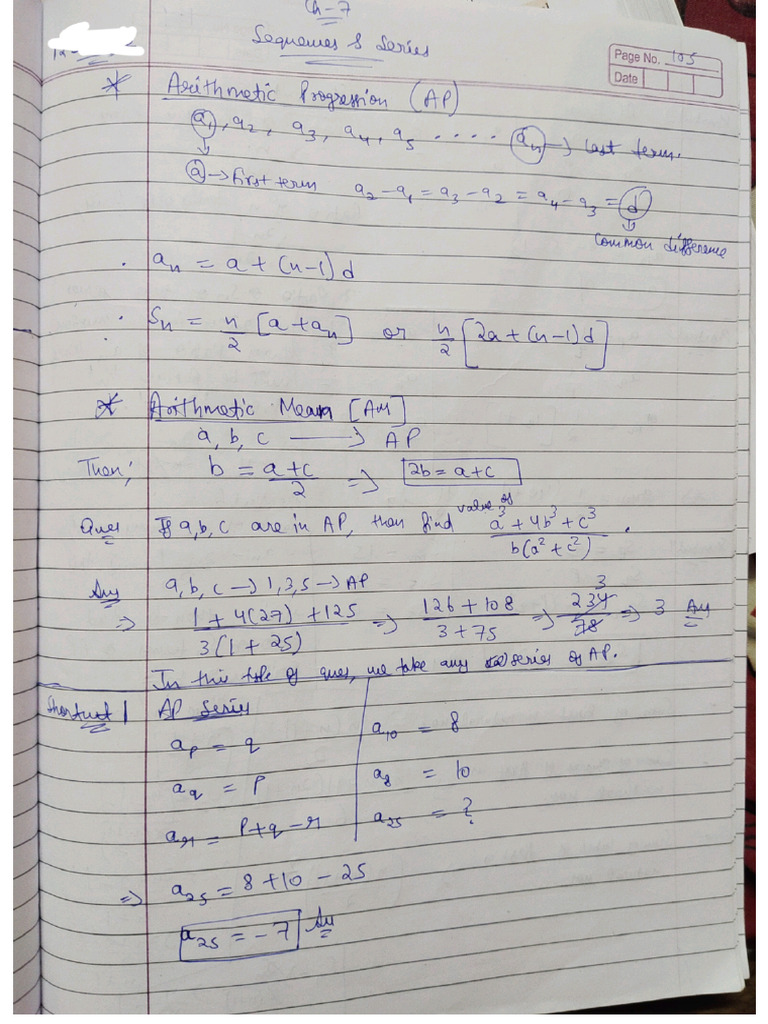 Ch-7
Sequences & Series
Page No. 105
Date
* Arithmetic Progression (AP)
a₁, a₂, a₃, a₄, a₅ . . . . . aₙ → Last term.
a → First term a₂ - a₁ = a₃ - a₂ = a₄ - a₃ = d
Common difference
. aₙ = a + (n-1)d
. Sₙ = n/2 [a + aₙ] or n/2 [2a + (n-1)d]
* Arithmetic Mean [AM]
a, b, c → AP
Then; b = a+c/2 ⇒ 2b = a+c
Ques If a, b, c are in AP, then find value of a³ + 4b³ + c³ / b(a² + c²) .
Ans a, b, c → 1, 3, 5 → AP
⇒ 1 + 4(27) + 125 / 3(1 + 25) ⇒ 126 + 108 / 3 + 75 ⇒ 234 / 78 3 ⇒ 3 Ans
In this type of ques, we take any series of AP.
Shortcut 1 AP Series
aₚ = q a₁₀ = 8
a_q = p a₈ = 10
aᵣ = p+q-r a₂₅ = ?
⇒ a₂₅ = 8 + 10 - 25
a₂₅ = -7 Ans